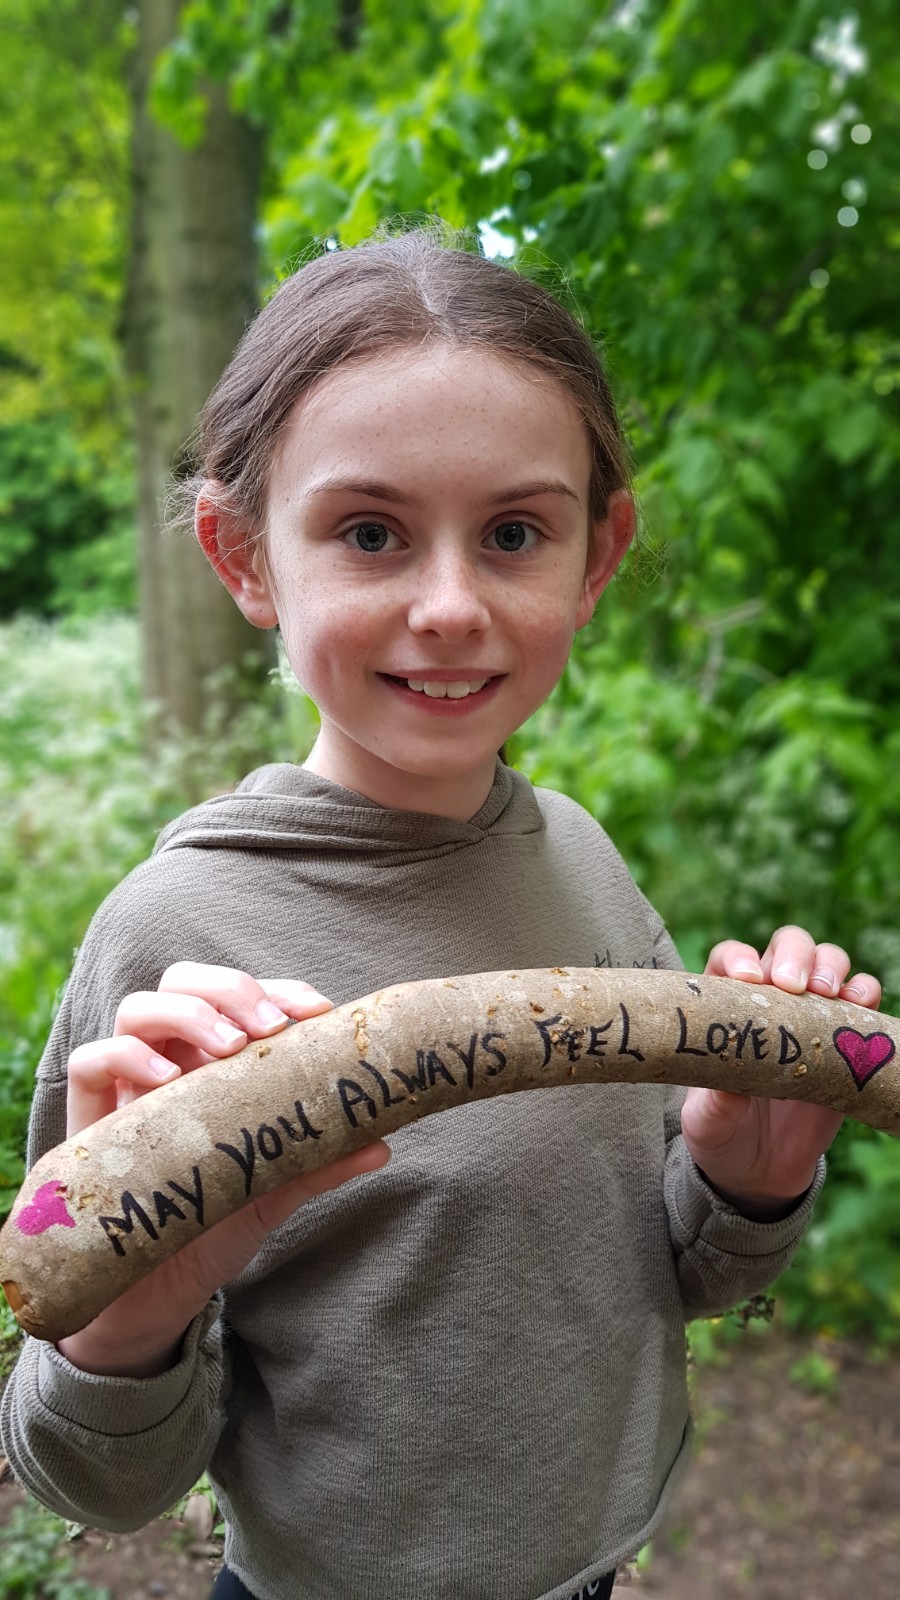 MAY YOU ALWAYS FEEL LOVED